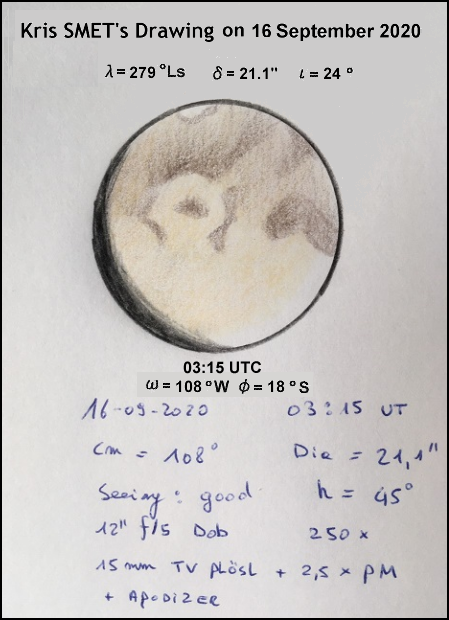 Kris SMET's Drawing on 16 September 2020
λ = 279 °Ls δ = 21.1" ι = 24 °
03:15 UTC
ω = 108 °W ϕ = 18 °S
16-09-2020 03:15 UT
Cm = 108° Dia = 21,1"
Seeing : good h = 45°
12" f/5 Dob 250 x
15 mm TV plösl + 2,5 x PM
+ Apodizer